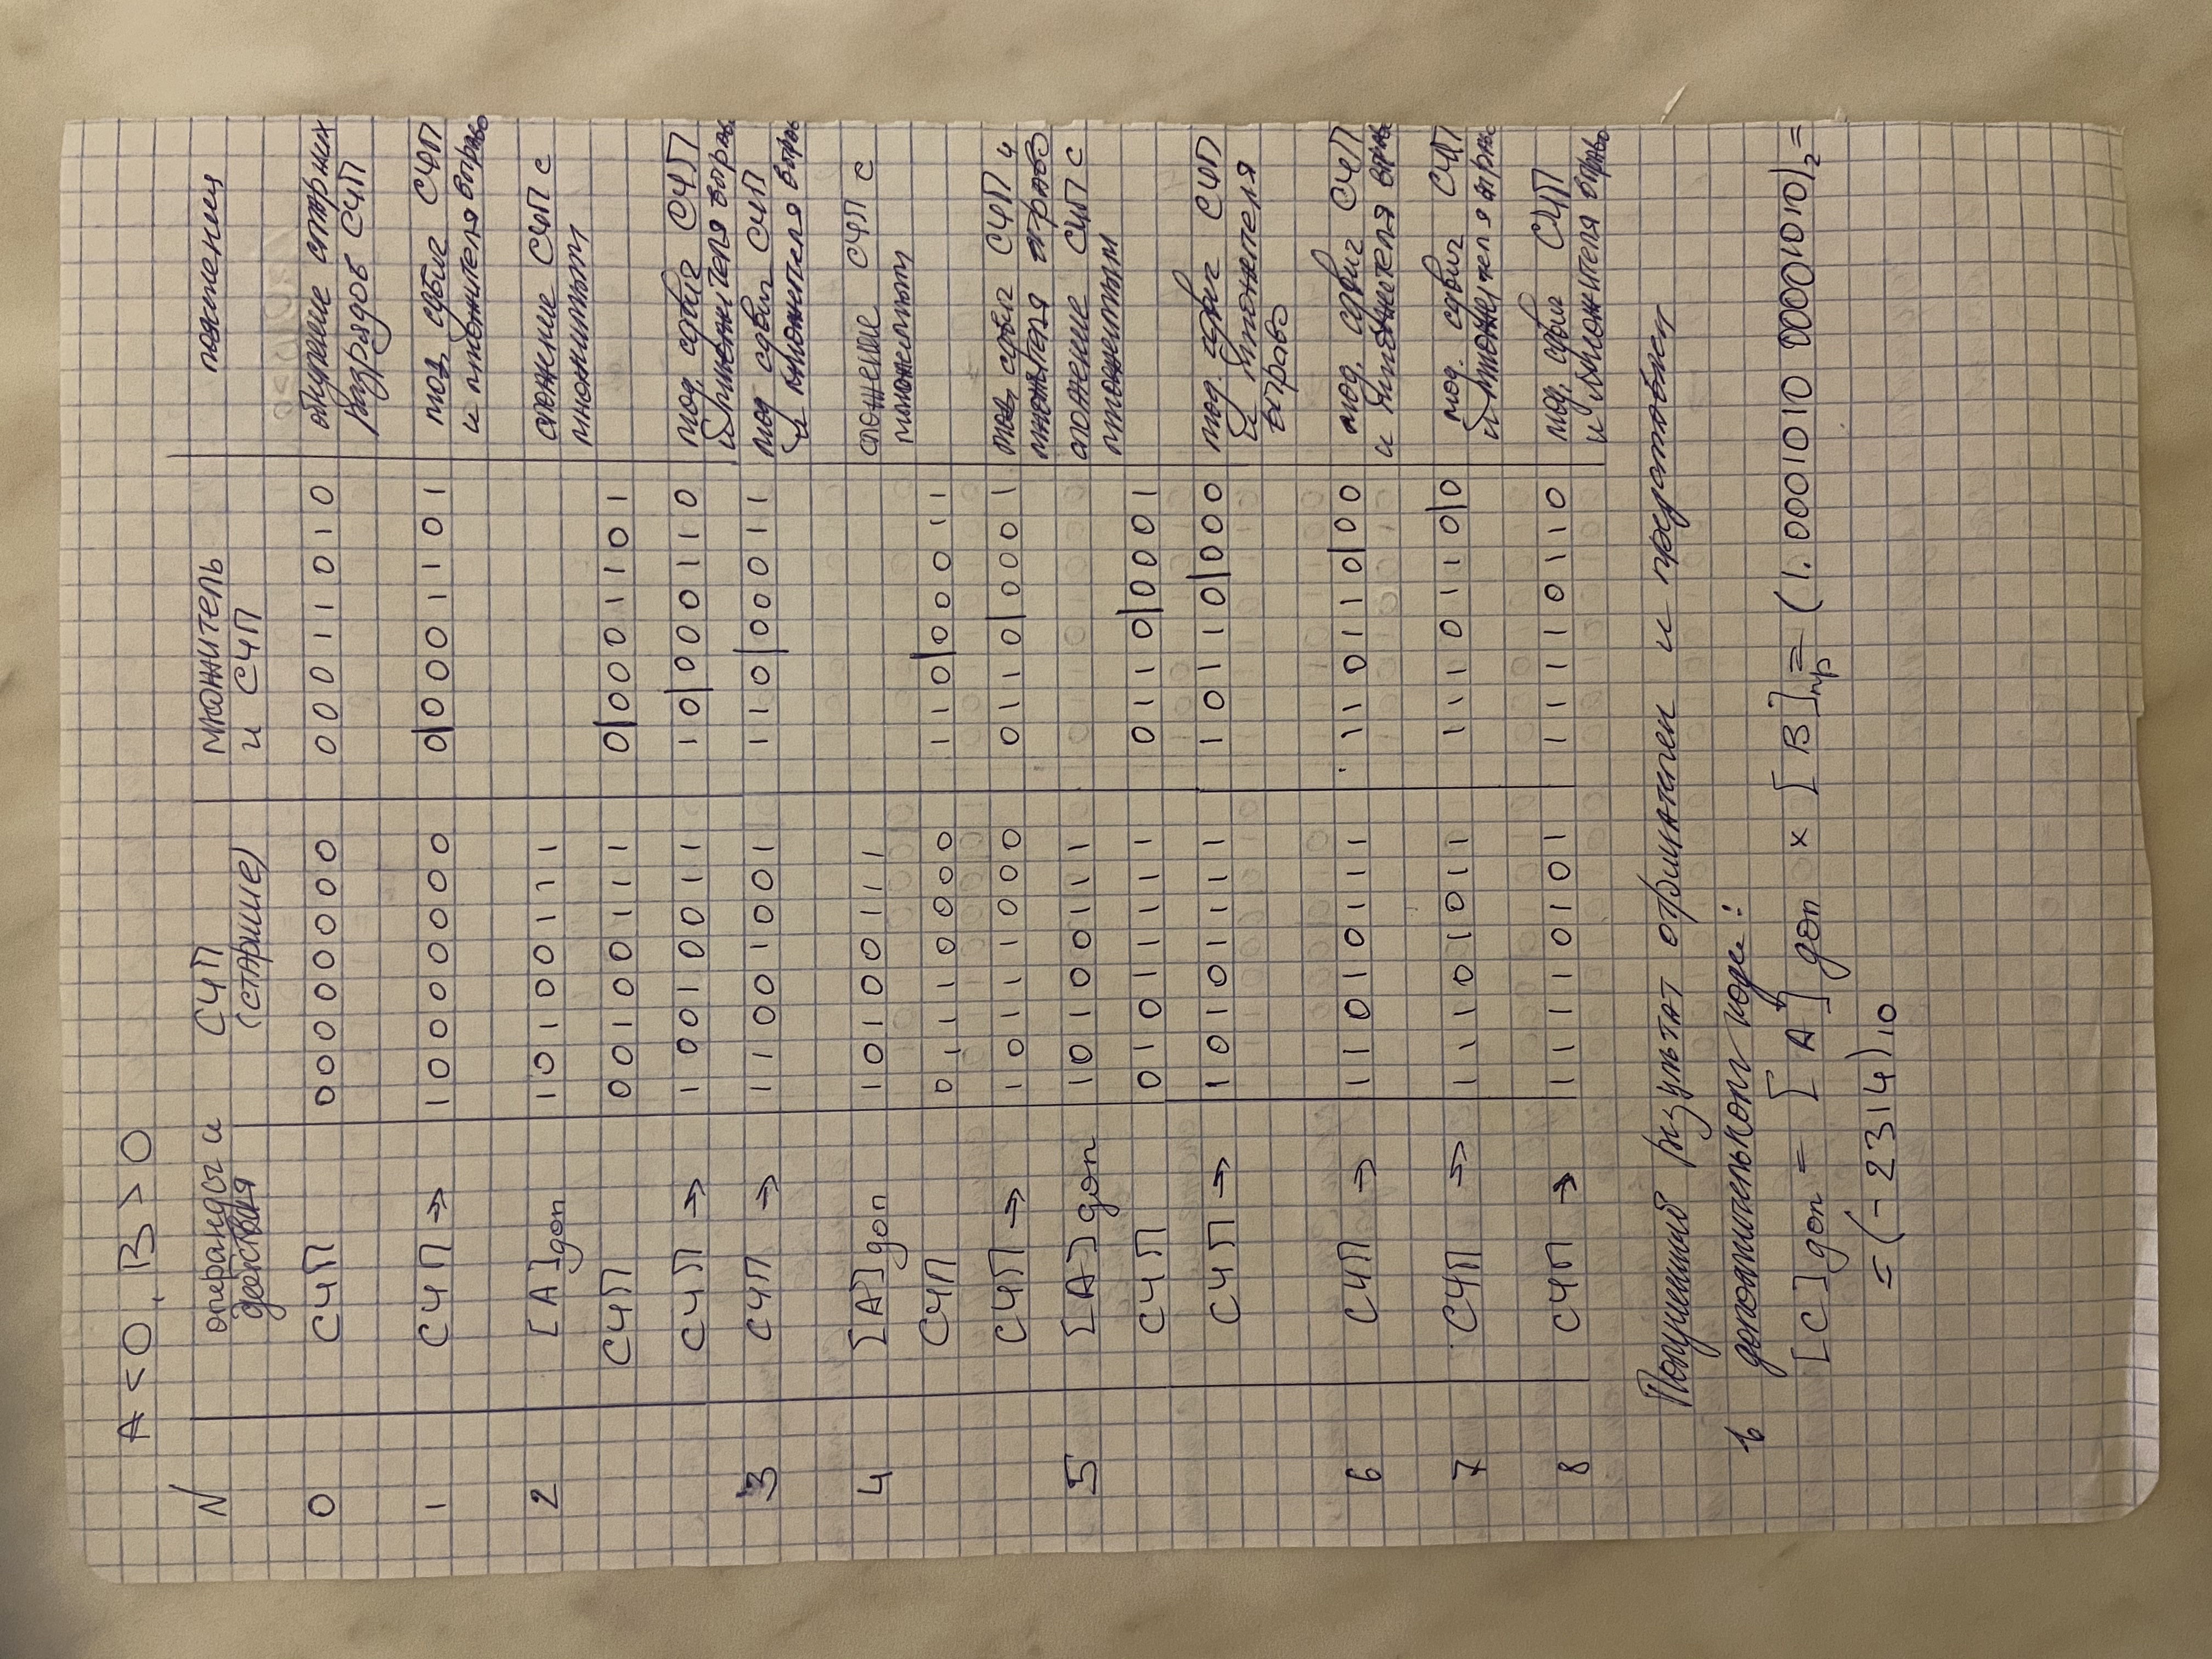 A < 0, B > 0
N операнды и действия СЧП (старшие) множитель и СЧП пояснения
0 СЧП 00000000 00011010 обнуление старших
разрядов СЧП
1 СЧП → 10000000 0|0001101 мод. сдвиг СЧП
и множителя вправо
2 [A]доп 10100111 сложение СЧП с
множимым
СЧП 00100111 0|0001101
СЧП → 10010011 10|000110 мод. сдвиг СЧП
и множителя вправо
3 СЧП → 11001001 110|00011 мод сдвиг СЧП
и множителя вправо
4 [A]доп 10100111 сложение СЧП с
множимым
СЧП 01110000 110|00011
СЧП → 10111000 0110|0001 мод. сдвиг СЧП и
множителя вправо
5 [A]доп 10100111 сложение СЧП с
множимым
СЧП 01011111 0110|0001
СЧП → 10101111 10110|000 мод. сдвиг СЧП
и множителя
вправо
6 СЧП → 11010111 110110|00 мод. сдвиг СЧП
и множителя вправо
7 СЧП → 11101011 1110110|0 мод. сдвиг СЧП
и множителя вправо
8 СЧП → 11110101 11110110 мод. сдвиг СЧП
и множителя вправо
Полученный результат отрицателен и представлен
в дополнительном коде:
[C]доп = [A]доп × [B]пр = (1.0001010 00001010)2 =
= (-2314)10